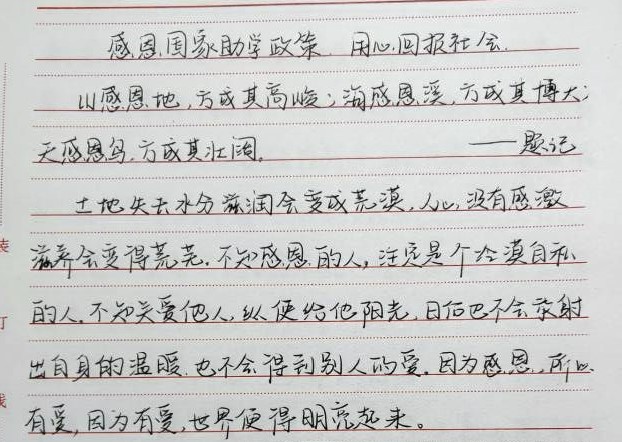 感恩国家助学政策 用心回报社会
山感恩地,方成其高峻;海感恩溪,方成其博大;
天感恩鸟,方成其壮阔。 ——题记
土地失去水分滋润会变成荒漠,人心没有感激
滋养会变得荒芜。不知感恩的人,注定是个冷漠自私
的人,不知关爱他人,纵使给他阳光,日后也不会放射
出自身的温暖,也不会得到别人的爱。因为感恩,所以
有爱,因为有爱,世界便得明亮起来。
装
订
线